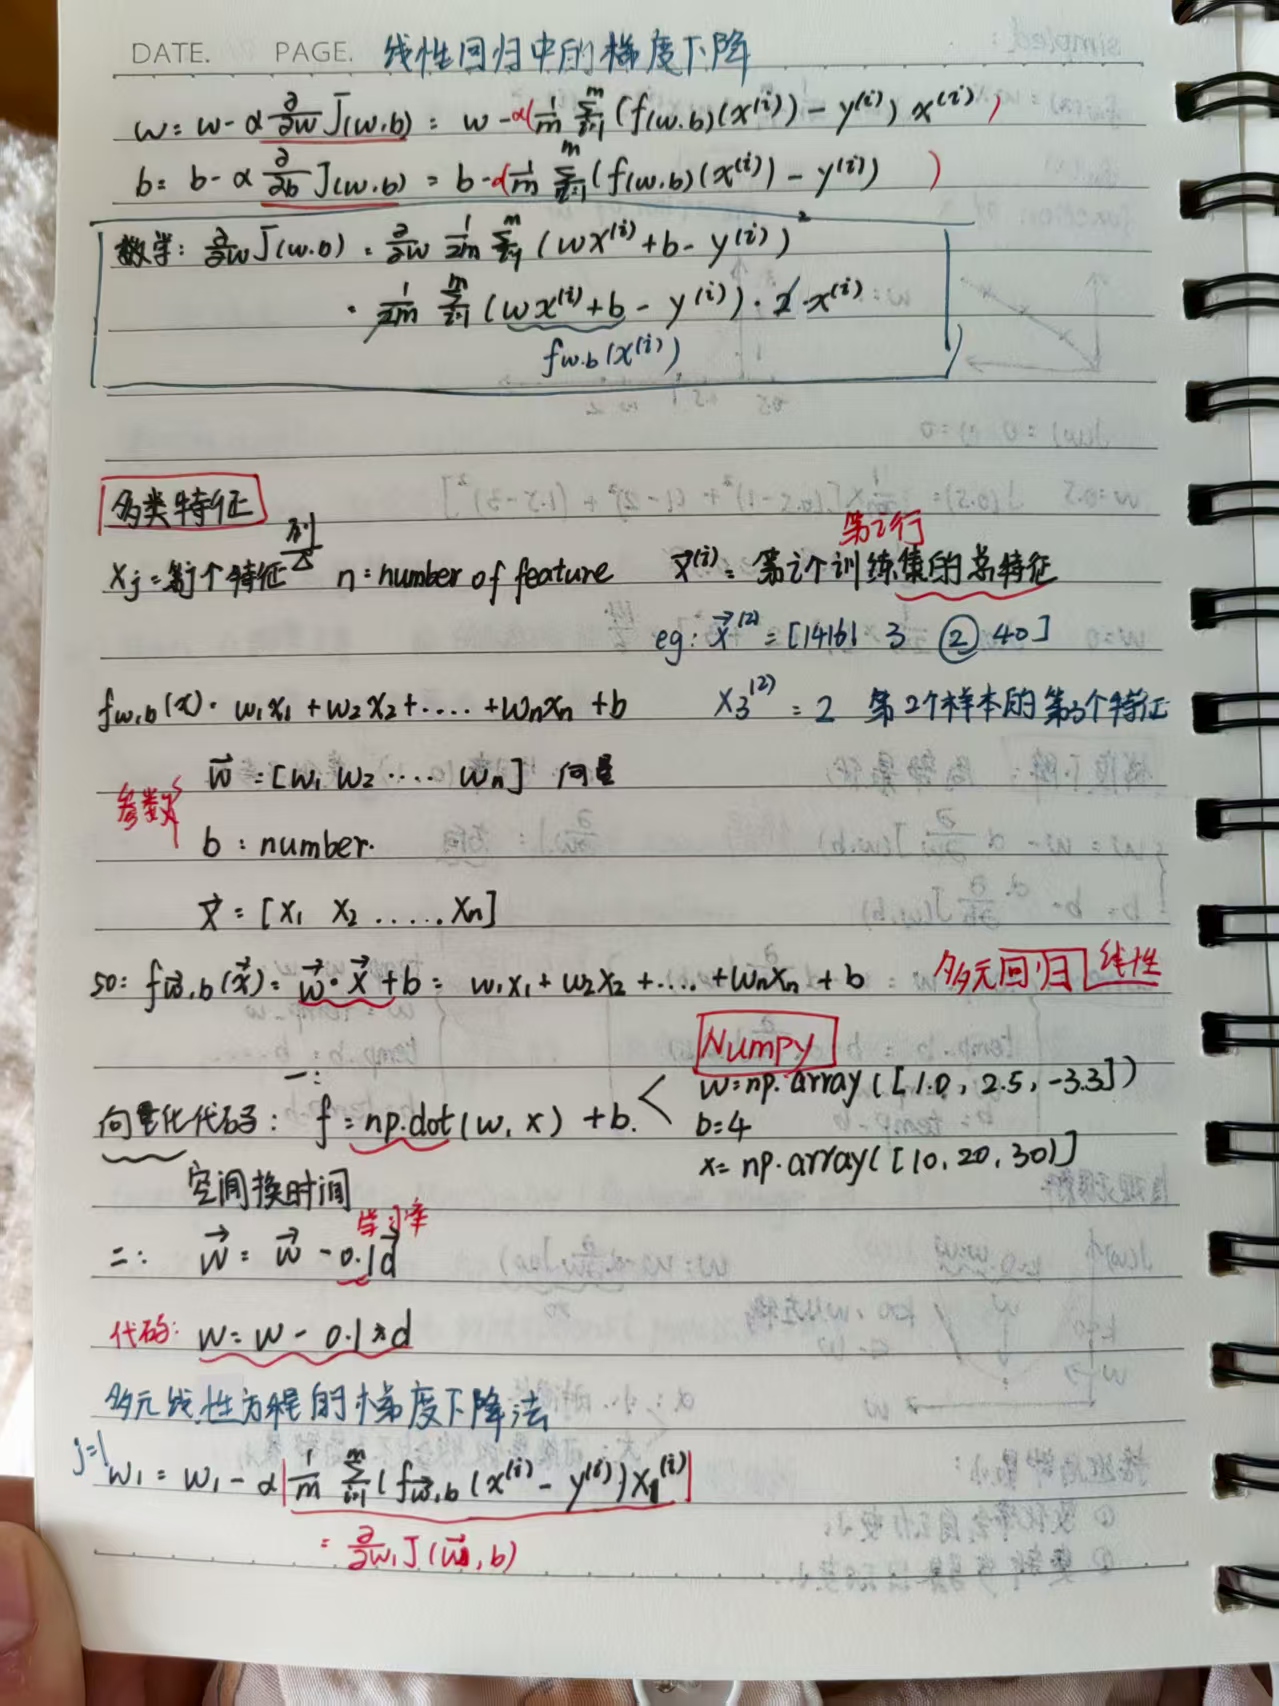 DATE. PAGE. 线性回归中的梯度下降
w = w - α ∂/∂w J(w.b) = w - α( 1/m Σ_{i=1}^{m} (f(w.b)(x^(i)) - y^(i)) x^(i) )
b = b - α ∂/∂b J(w.b) = b - α( 1/m Σ_{i=1}^{m} (f(w.b)(x^(i)) - y^(i)) )
数学: ∂/∂w J(w.b) = ∂/∂w 1/2m Σ_{i=1}^{m} (wx^(i) + b - y^(i))²
= 1/2m Σ_{i=1}^{m} (wx^(i) + b - y^(i)) · 2 · x^(i)
fw.b(x^(i))
多类特征
列
第i行
xj = 第j个特征 n: number of feature x⃗^(i) = 第i个训练集的总特征
eg: x⃗^(2) = [1416 3 ② 40]
fw,b(x) = w1x1 + w2x2 + .... + wnxn + b x3^(2) = 2 第2个样本的第3个特征
w⃗ = [w1 w2 .... wn] 向量
参数
b : number.
x⃗ = [x1 x2 ..... xn]
so: fw⃗,b(x⃗) = w⃗ · x⃗ + b = w1x1 + w2x2 + .... + wnxn + b 多元回归 线性
Numpy
一:
w=np.array([1.0, 2.5, -3.3])
向量化代码: f = np.dot(w, x) + b.
b=4
x= np.array([10, 20, 30)]
空间换时间
学习率
二: w⃗ = w⃗ - 0.1d⃗
代码: w = w - 0.1*d
多元线性方程的梯度下降法
j=1
w1 = w1 - α | 1/m Σ_{i=1}^{m} (fw⃗,b(x^(i) - y^(i)) x1^(i) |
= ∂/∂w1 J(w⃗, b)